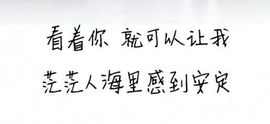 看着你 就可以让我
茫茫人海里感到安定